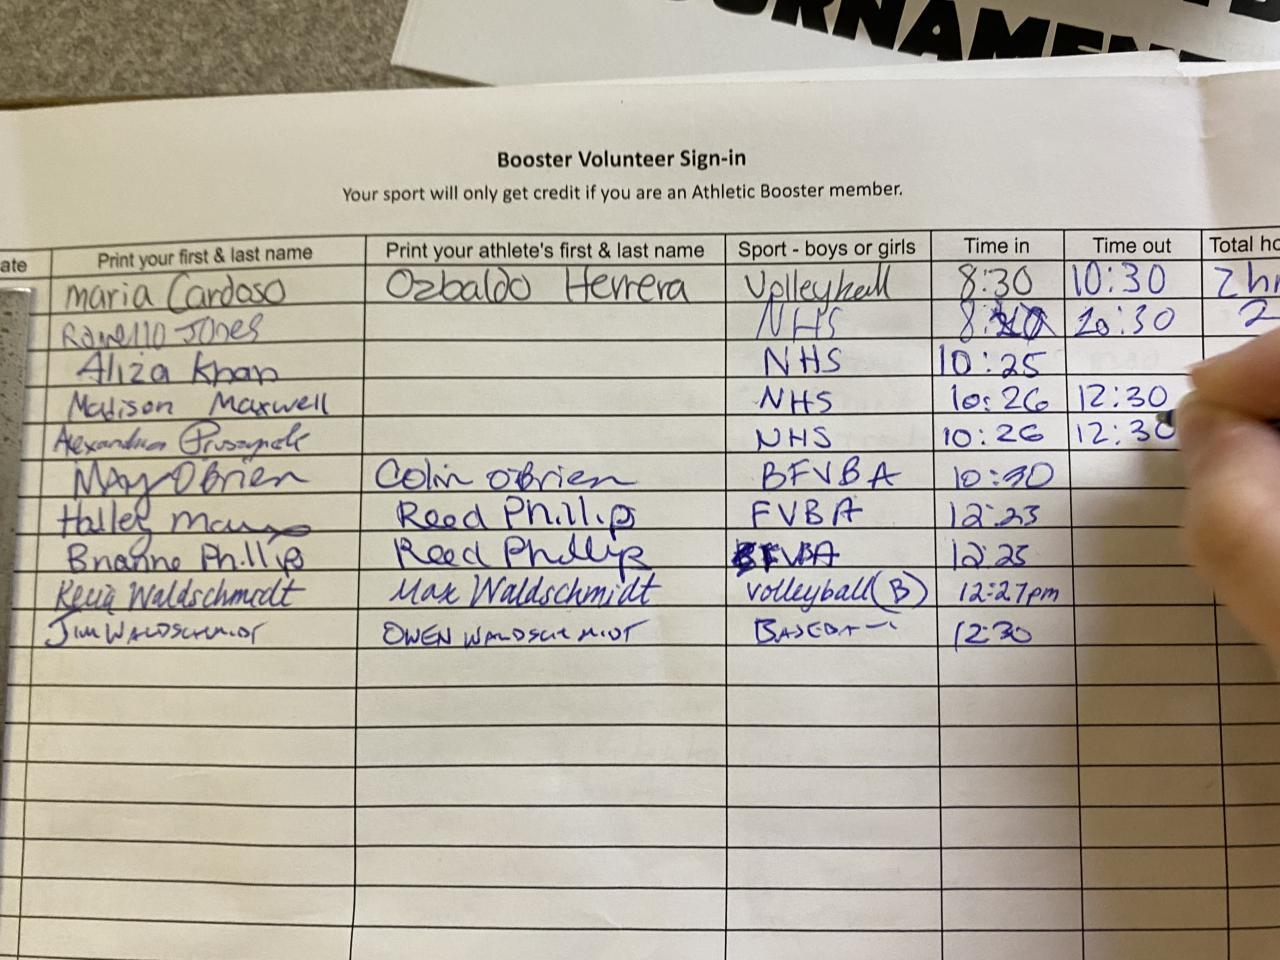 Booster Volunteer Sign-in
Your sport will only get credit if you are an Athletic Booster member.
ate Print your first & last name Print your athlete's first & last name Sport - boys or girls Time in Time out Total ho
Maria Cardoso Ozbaldo Herrera Volleyball 8:30 10:30 2 hr
Jones NHS 10:30 2
Aliza Khan NHS 10:25
Madison Maxwell NHS 10:26 12:30
Alexandra NHS 10:26 12:30
May O'Brien Colin O'Brien BFVBA 10:30
Halley Reed Phillip FVBA 12:23
Brianne Phillip Reed Phillip BFVBA 12:25
Waldschmidt Max Waldschmidt volleyball (B) 12:27pm
Jim Waldschmidt Owen Waldschmidt 12:30